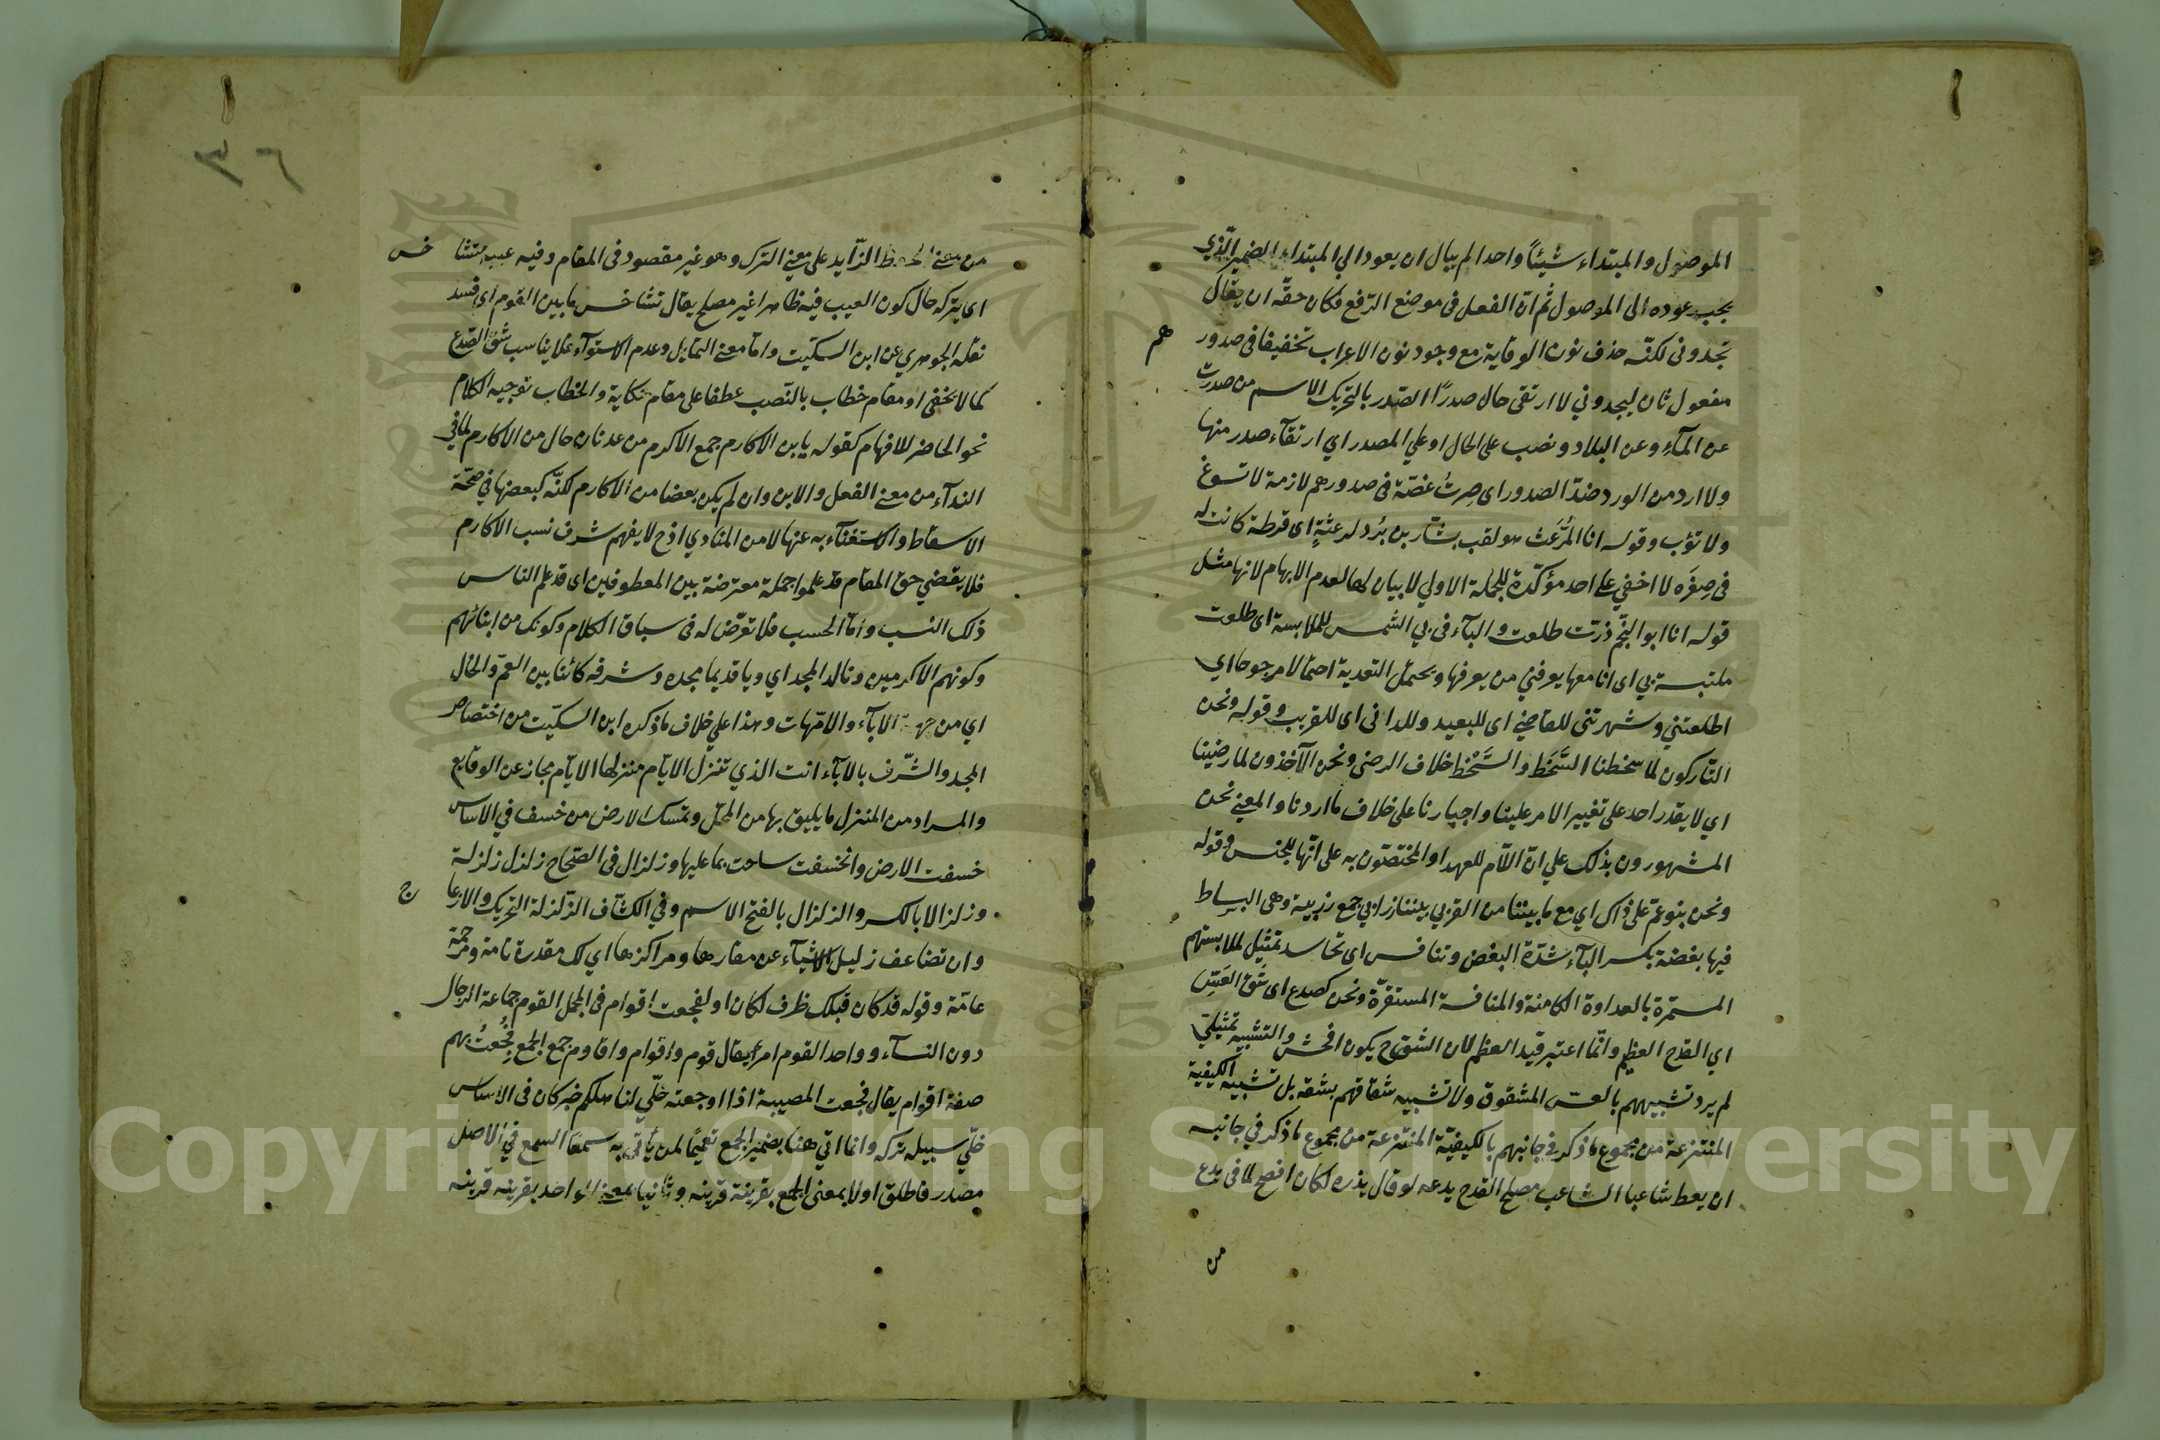 الموصول والمبتداء شيئاً واحدا لم يبال ان يعود الي المبتداء الضمير الّذي
يجب عوده الى الموصول ثم انّ الفعل فى موضع الرّفع فكان حقّه ان يقال
يجدوننى لكنّه حذف نون الوقاية مع وجود نون الاعراب تخفيفا فى صدور
هم
مفعول ثان ليجدوني لا ارتقى حال صدرًا الصّدر بالتحريك الاسم من صدرت
عن المآء وعن البلاد ونصب على الحال او على المصدر اي ارتقآء صدر منها
ولا ارد من الورد ضدّ الصدور اى صِرتُ غصّة فى صدورهم لازمة لا تسوغ
ولا تؤب وقوله انا المُرَعَّث هو لقب بشّار بن بُرد لرعثةٍ اى قرطة كانت له
فى صِغَره لا اخفي على احد مؤكّدة للجملة الاولي لا بيان لها لعدم الابهام لانها مثل
قوله انا ابو النّجم ذرّت طلعت والبآء فى بي الشّمس للملابسة اى طلعت
ملتبسة بي اى انا معها يعرفني من يعرفها ويحتمل التعدية احتمالا مرجوحا اي
اطلعتني وشهرتنى للقاصي اى للبعيد وللدانى اى للقريب وقوله ونحن
التّاركون لما سخطنا السَّخَط والسُّخْط خلاف الرضى ونحن الآخذون لما رضينا
اي لا يقدر احد على تغيير الامر علينا واجبارنا على خلاف ما اردنا والمعني نحن
المشهورون بذلك علي انّ اللّام للعهد او المختصّون به على انّها للجنس وقوله
ونحن بنو عمّ على ذاك اي مع ما بيننا من القربي بيننا زرابي جمع زربية وهى البساط
فيها بغضة بكسر البآء شدّة البغض وتنافس اى تحاسد تمثيل لملابستهم
المستمرّة بالعداوة الكامنة والمنافسة المستقرّة ونحن كصدع اى شَقّ العَسّ
اي القدح العظيم وانّما اعتبر قيد العظم لان الشق ح يكون افحش والتشبيه تمثيلي
لم يرد تشبيههم بالعسّ المشقوق ولا تشبيه شقاقهم بشقه بل تشبيه الكيفية
المنتزعة من مجموع ما ذكر في جانبهم بالكيفيّة المنتزعة من مجموع ما ذكر في جانبه
ان يعط شاعبا الشاعب مصلح القدح يدعه لو قال يذره لكان افصح لما فى يدع
من
٣٦
من معنى الزّايد على معني الترك وهو غير مقصود فى المقام وفيه عيبه متشا
خس
اى يتركه حال كون العيب فيه ظاهرا غير مصلح يقال تشاخس ما بين القوم اى فسد
نقله الجوهري عن ابن السكّيت وامّا معني التمايل وعدم الاستوآء فلا يناسب شقّ الصّدع
كما لا يخفى او مقام خطاب بالنّصب عطفا على مقام حكاية والخطاب توجيه الكلام
نحو الحاضر للافهام كقوله يا بن الاكارم جمع الاكرم من عدنان حال من الاكارم لما في
الندآء من معني الفعل والابن وان لم يكن بعضا من الاكارم لكنّه كبعضها في صحّة
الاسقاط والاستغنآء به عنها لا من المنادي اذ ح لا يفهم شرف نسب الاكارم
فلا يقضي حق المقام قد علموا جملة معترضة بين المعطوفين اى قد علم الناس
ذلك النسب وامّا الحسب فلا تعرّض له فى سباق الكلام وكونك من ابنائهم
وكونهم الاكرمين وتالد المجد اي ويا قديما مجده وشرفه كائنا بين العمّ والخال
اي من جهة الابآء والامّهات وهذا علي خلاف ما ذكره ابن السكّيت من اختصاص
المجد والشّرف بالابآء انت الذي تنزل الايّام منزلها الايّام مجاز عن الوقايع
والمراد من المنزل ما يليق بها من المحلّ وتمسك الارض من خسف في الاساس
خسفت الارض وانخسفت ساخت بما عليها وزلزال فى الصّحاح زلزل زلزلة
وزلزالا بالكسر والزلزال بالفتح الاسم وفي الكشّاف الزّلزلة التحريك والازعا
ج
وان تضاعف زليل الاشيآء عن مقارها ومراكزها اي لك مقدرة تامة ومرحمة
عامّة وقوله قد كان قبلك ظرف لكان او لفجعت اقوام فى المجمل القوم جماعة الرجال
دون النسآء وواحد القوم امرؤ يقال قوم واقوام واقاوم جمع الجمع فُجِعتُ بهم
صفة اقوام يقال فجعت المصيبة اذا اوجعته خلّي لنا هلكهم خبر كان فى الاساس
خلّي سبيله تركه وانما اتي هنا بضمير الجمع تعميمًا لمن يأتى به سمعا السمع في الاصل
مصدر فاطلق اولا بمعنى الجمع بقرينة قرينه وثانيا بمعني الواحد بقرينه قرينه